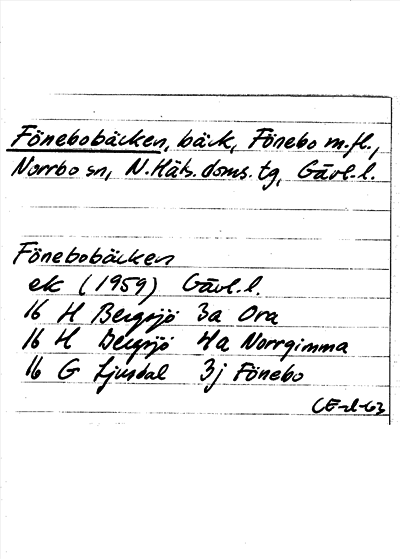 Fönebobäcken, bäck, Fönebo m.fl.,
Norrbo sn, N.Häls. doms. tg, Gävl.l.
Fönebobäcken
ek (1959) Gävl.l.
16 H Bergsjö 3a Ora
16 H Bergsjö 4a Norrgimma
16 G Ljusdal 3j Fönebo
CE-l-63